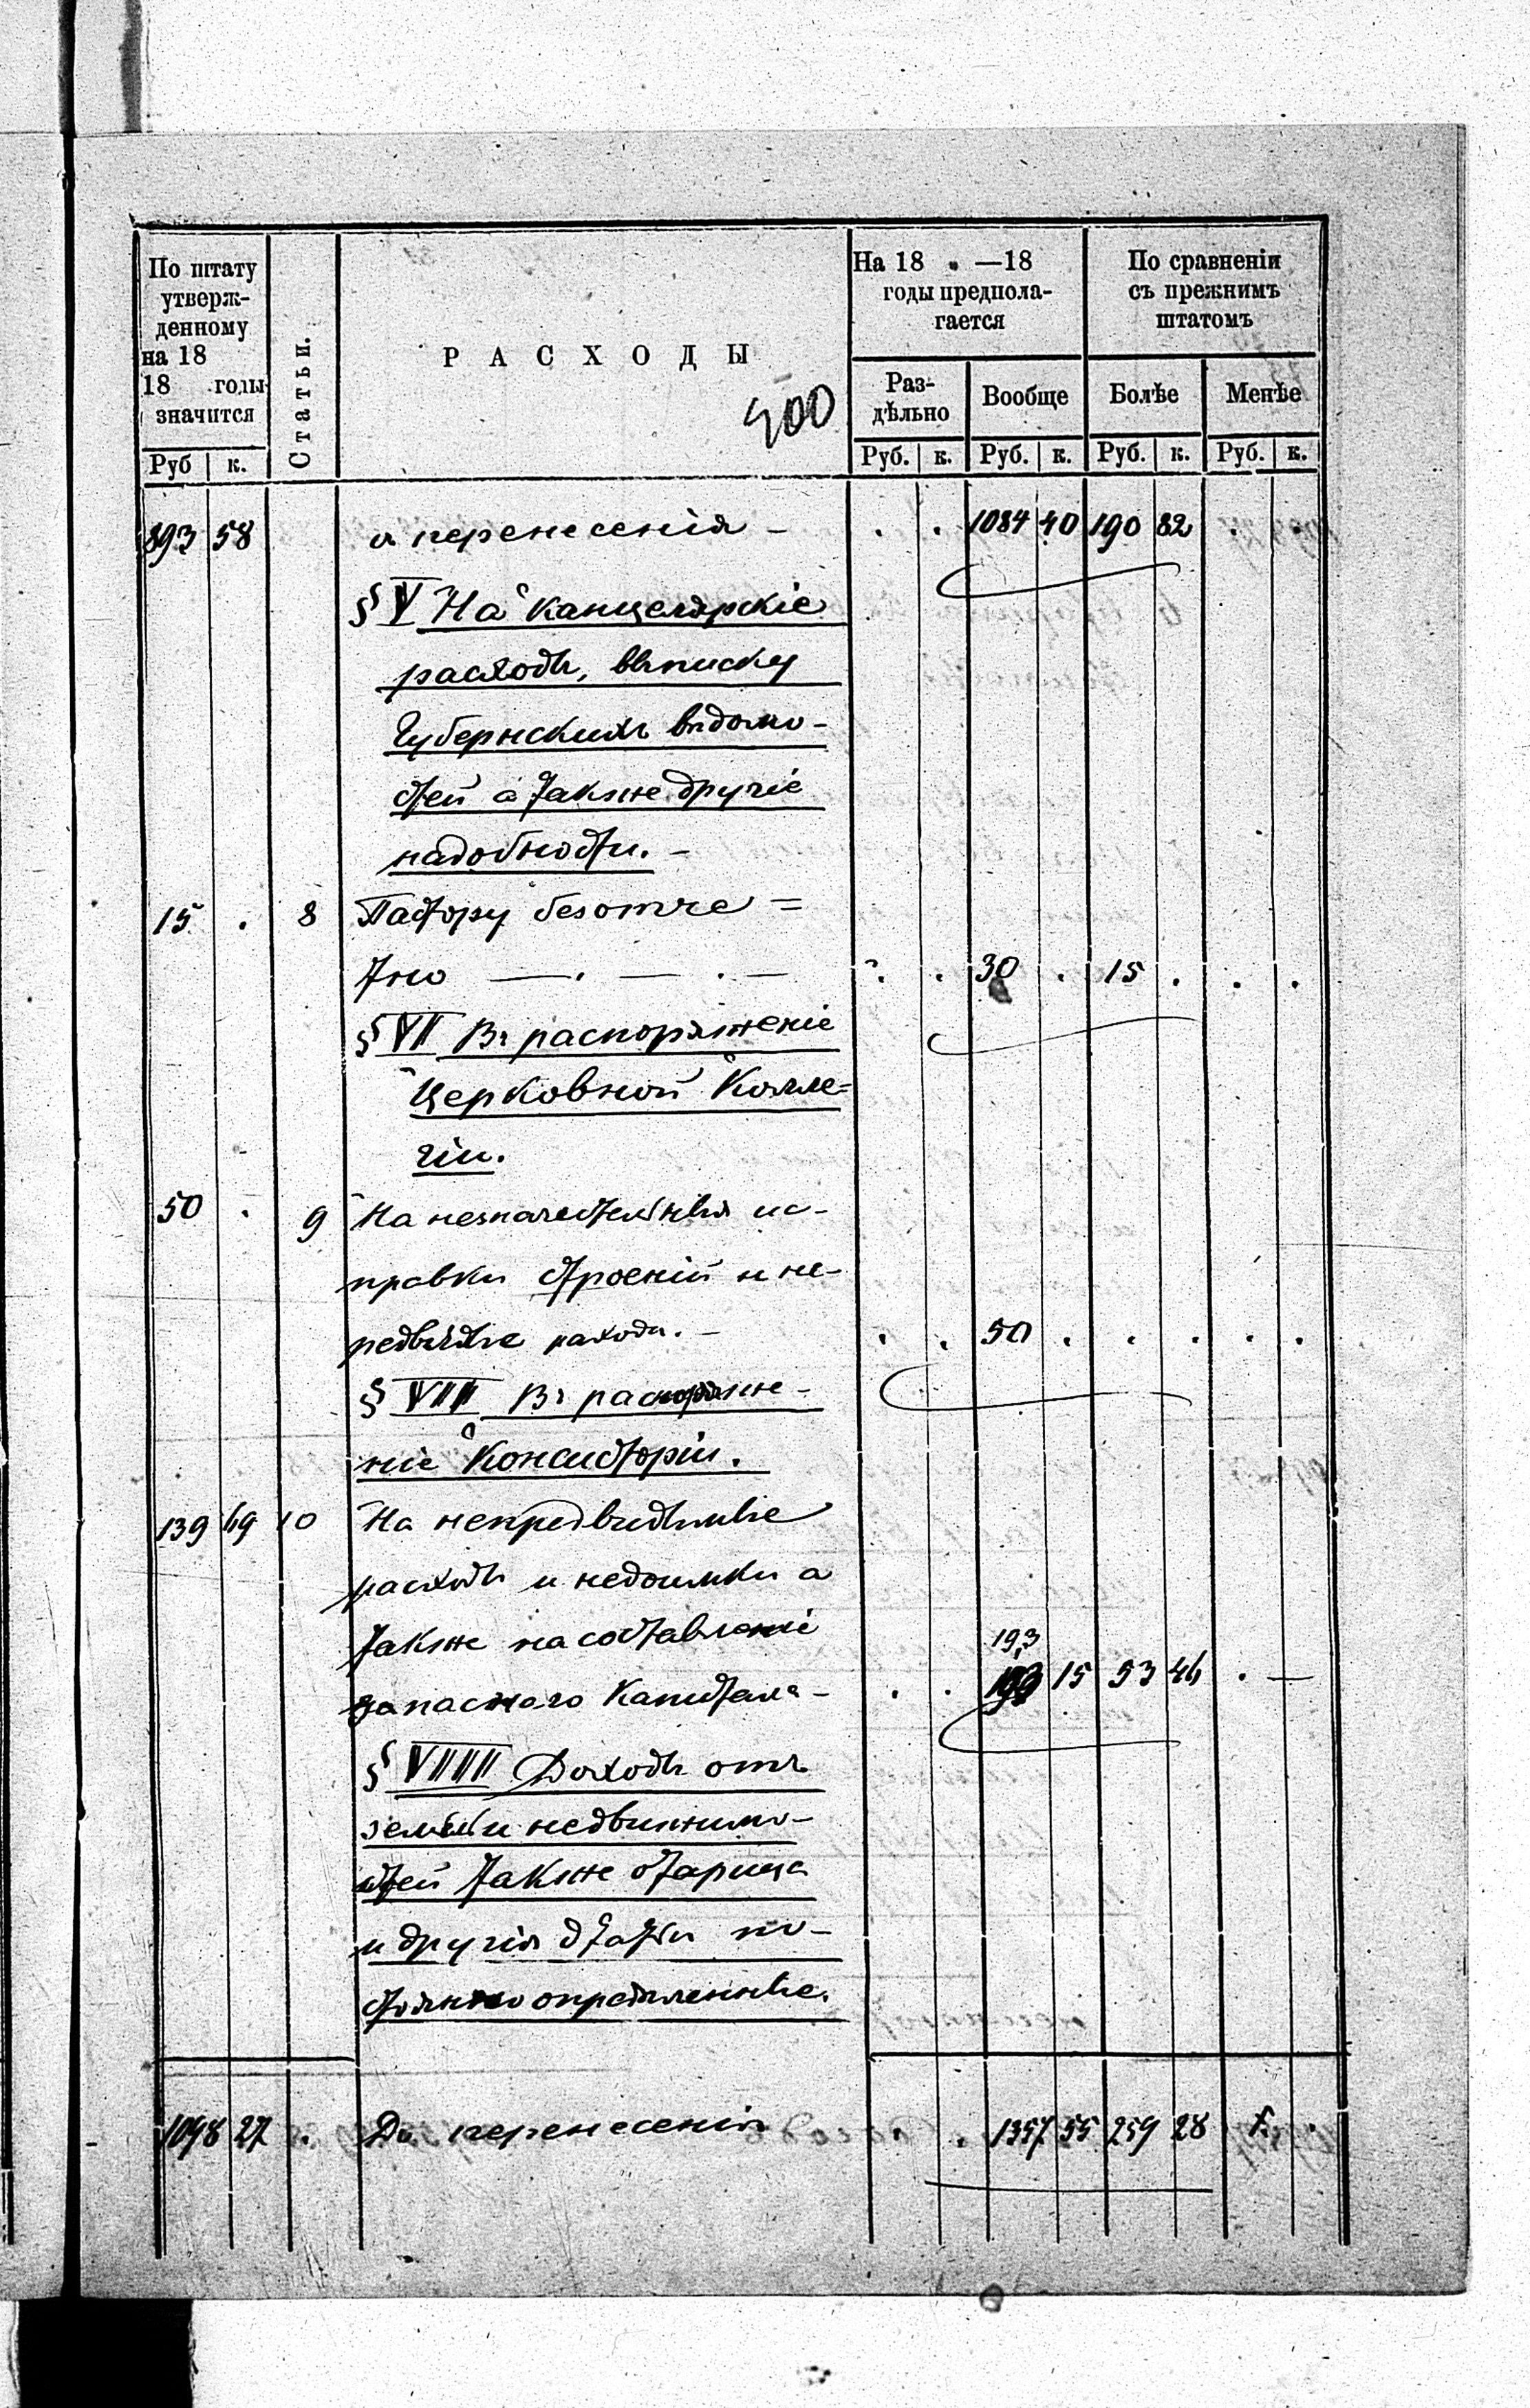 По штату утверж-денному на 18 18 годы значится
Статьи.
РАСХОДЫ
На 18 —18 годы предпола-гается
По сравненіи съ прежнимъ штатомъ
Раз-дѣльно
Вообще
Болѣе
Менѣе
Руб к. Руб. к. Руб. к. Руб. к. Руб. к.
893 58 перенесенія - . . 1084 40 190 82 . .
§ V На канцелярскіе
расходы, выписку
Губернскихъ вѣдомо-
стей а также другіе
надобности. -
15 . 8 Пастору безотче=
тно — . — . — . . 30 . 15 . . .
§ VII Въ распоряженіе
Церковной Колле-
гіи.
50 . 9 На незначительныя ис-
правки строеній и не-
расходы. - . . 50 . . . . .
§ VIII Въ распоряже-
ніе Консисторіи.
139 69 10 На непредвидимые
расходы и недоимки а
также на составленіе
193
запаснаго капитала - . . 15 53 46 . —
§ VIIII Доходы отъ
земли и недвижимо-
стей также старица
и другія статьи по-
стоянно опредѣленные.
1098 27 . До перенесенія . 1357 55 259 28